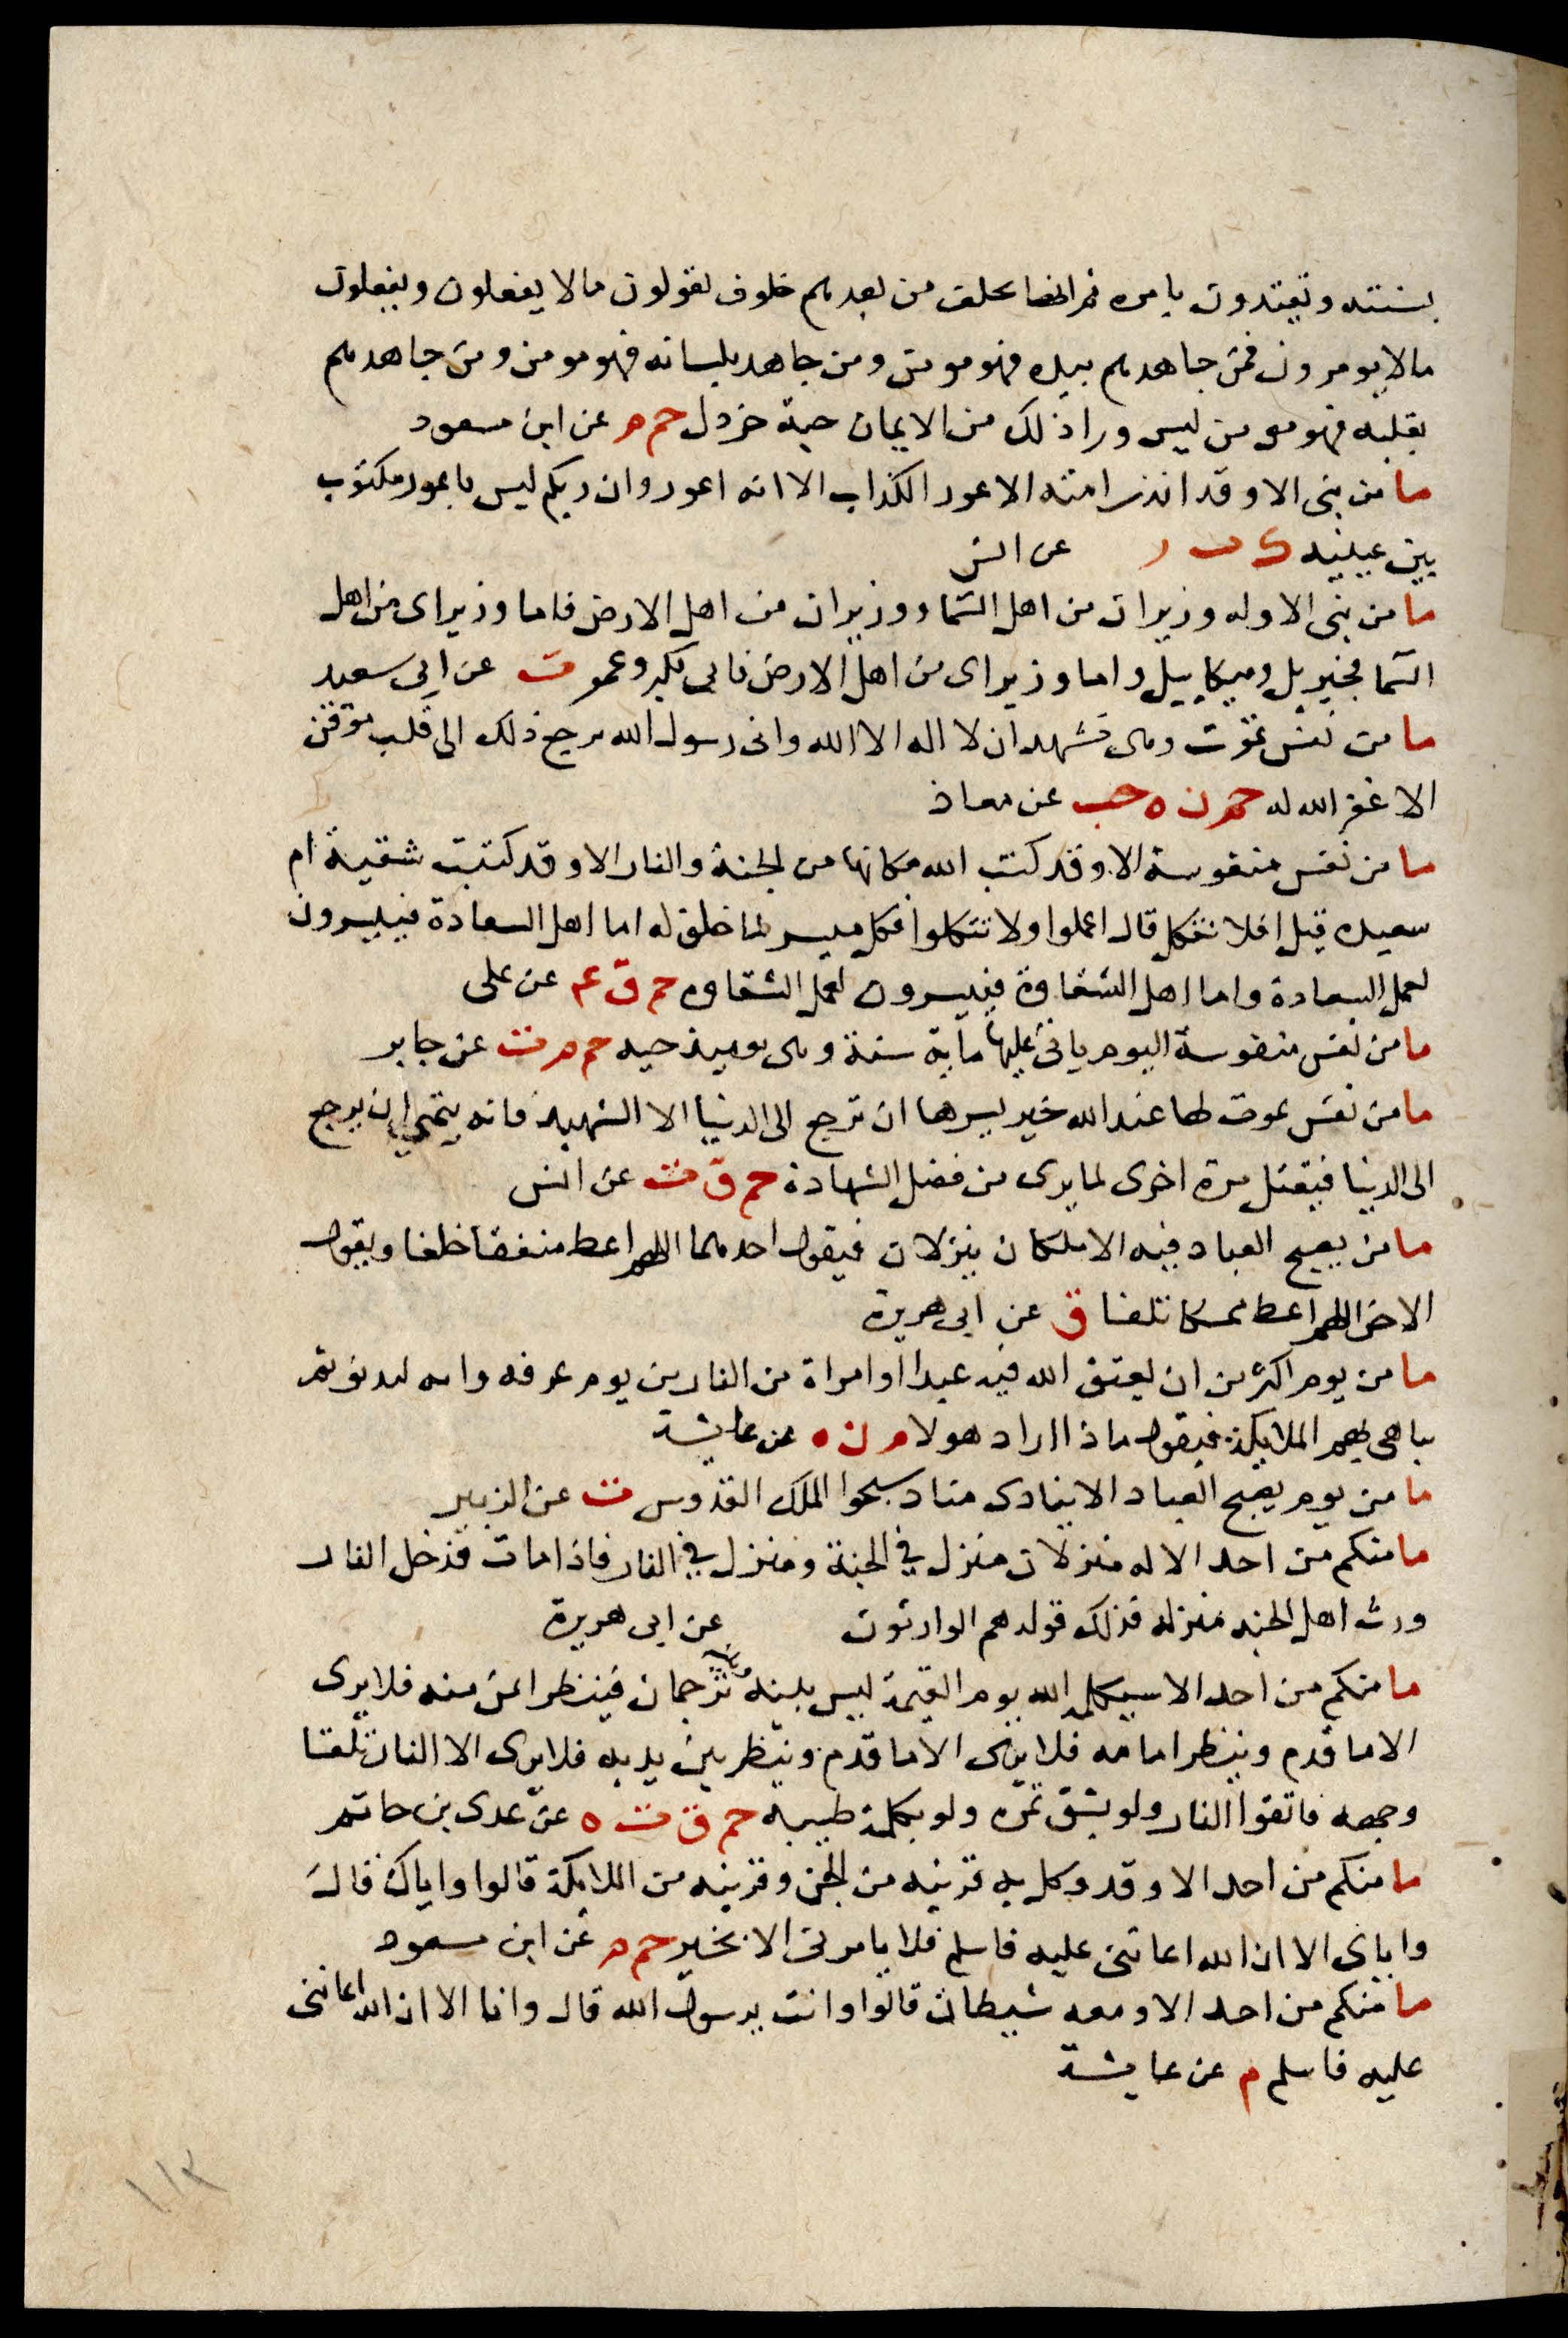 بسنته وتقتدون بامره ثم انها تخلف من بعدهم خلوف يقولون مالا يفعلون ويفعلون
مالا يومرون فمن جاهدهم بيده فهو مومن ومن جاهد بلسانه فهو مومن ومن جاهدهم
بقلبه فهو مومن ليس ورا ذلك من الايمان حبة خردل حم م عن ابن مسعود
ما من نبى الا وقد انذر امته الاعور الكذاب الا انه اعور وان ربكم ليس باعور مكتوب
بين عينيه عن انس
ما من نبى الا وله وزيران من اهل السما ووزيران من اهل الارض فاما وزيراى من اهل
السما فجبريل وميكاييل واما وزيراى من اهل الارض فابى بكر وعمر ت عن ابى سعيد
ما من نفس تموت وهى تشهد ان لا اله الا الله وانى رسول الله يرجع ذلك الى قلب موقن
الا غفر الله له حم ن ه حب عن معاذ
ما من نفس منفوسة الا وقد كتب الله مكانها من الجنة والنار الا وقد كتبت شقية ام
سعيده قيل افلا نتكل قال اعملوا ولا تتكلوا فكل ميسر لما خلق له اما اهل السعادة فييسرون
لعمل السعادة واما اهل الشقاوة فييسرون لعمل الشقاوه حم ق ع عن على
ما من نفس منفوسة اليوم ياتى عليها ماية سنة وهى يوميذ حيه حم م ت عن جابر
ما من نفس تموت لها عند الله خير يسرها ان ترجع الى الدنيا الا الشهيد فانه يتمنى ان يرجع
الى الدنيا فيقتل مرة اخرى لما يرى من فضل الشهادة حم ق ت عن انس
ما من يصبح العباد فيه الا ملكان ينزلان فيقول احدهما اللهم اعط منفقا خلفا ويقول
الاخر اللهم اعط ممسكا تلفا ق عن ابى هريرة
ما من يوم اكثر من ان يعتق الله فيه عبدا او امراة من النار من يوم عرفه وانه ليدنو ثم
يباهى بهم الملايكة فيقول ماذا اراد هولا م ن ه عن عايشة
ما من يوم يصبح العباد الا ينادى مناد سبحوا الملك القدوس ت عن الزبير
ما منكم من احد الا له منزلان منزل في الجنة ومنزل في النار فاذا مات فدخل النار
ورث اهل الجنه منزله فذلك قوله هم الوارثون عن ابى هريرة
ما منكم من احد الا سيكلمه الله يوم القيمة ليس بينه وبينه ترجمان فينظر ايمن منه فلا يرى
الا ما قدم وينظر امامه فلا يرى الا ما قدم وينظر بين يديه فلا يرى الا النار تلقا
وجهه فاتقوا النار ولو بشق تمره ولو بكلمة طيبه حم ق ت ه عن عدى بن حاتم
ما منكم من احد الا وقد وكل به قرينه من الجن وقرينه من الملايكة قالوا واياك قال
واياى الا ان الله اعاننى عليه فاسلم فلا يامرنى الا بخير حم م عن ابن مسعود
ما منكم من احد الا ومعه شيطان قالوا وانت يرسول الله قال وانا الا ان الله اعاننى
عليه فاسلم م عن عايشة
١١٢